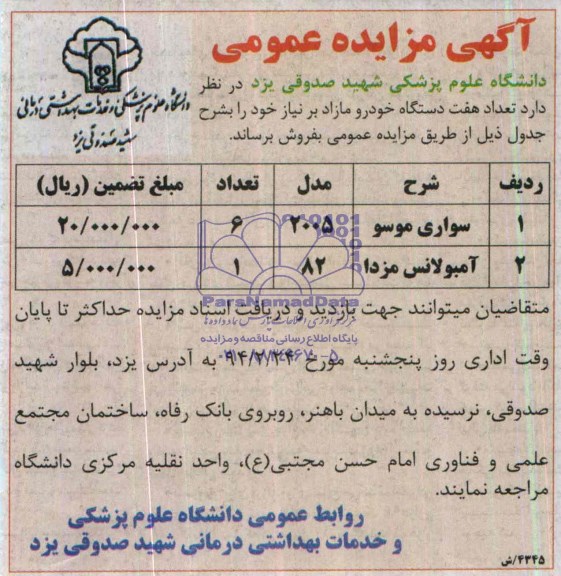 آگهی مزایده عمومی
دانشگاه علوم پزشکی و خدمات بهداشتی درمانی
شهید صدوقی یزد
دانشگاه علوم پزشکی شهید صدوقی یزد در نظر
دارد تعداد هفت دستگاه خودرو مازاد بر نیاز خود را بشرح
جدول ذیل از طریق مزایده عمومی بفروش برساند.
ردیف شرح مدل تعداد مبلغ تضمین (ریال)
۱ سواری موسو ۲۰۰۵ ۶ ۲۰/۰۰۰/۰۰۰
۲ آمبولانس مزدا ۸۲ ۱ ۵/۰۰۰/۰۰۰
ParsNamadData
متقاضیان میتوانند جهت بازدید و دریافت اسناد مزایده حداکثر تا پایان
پایگاه اطلاع رسانی مناقصه و مزایده
وقت اداری روز پنجشنبه مورخ ۹۴/۲/۲۴ به آدرس یزد، بلوار شهید
صدوقی، نرسیده به میدان باهنر، روبروی بانک رفاه، ساختمان مجتمع
علمی و فناوری امام حسن مجتبی(ع)، واحد نقلیه مرکزی دانشگاه
مراجعه نمایند.
روابط عمومی دانشگاه علوم پزشکی
و خدمات بهداشتی درمانی شهید صدوقی یزد
۴۳۴۵/ش